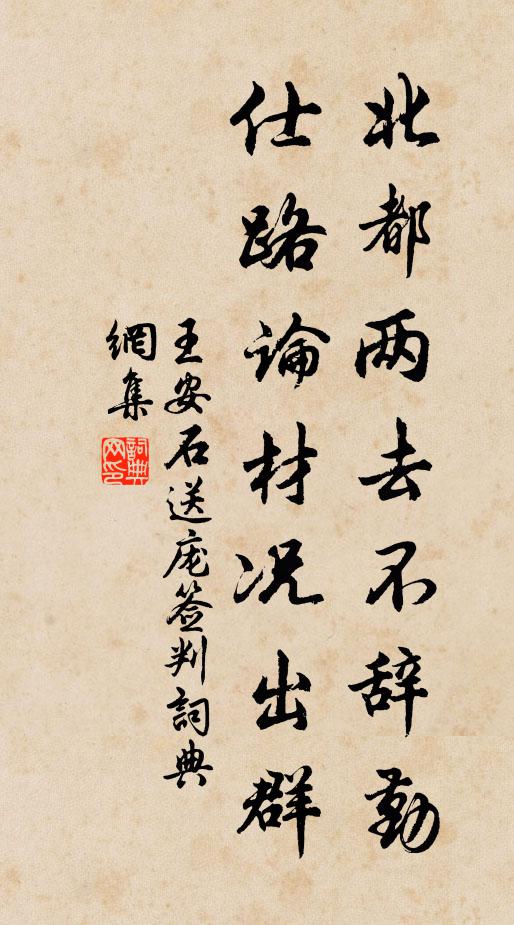 北都两去不辞勤
仕路論材况出群
王安石送庞签判詞典
網集
詞典
网印